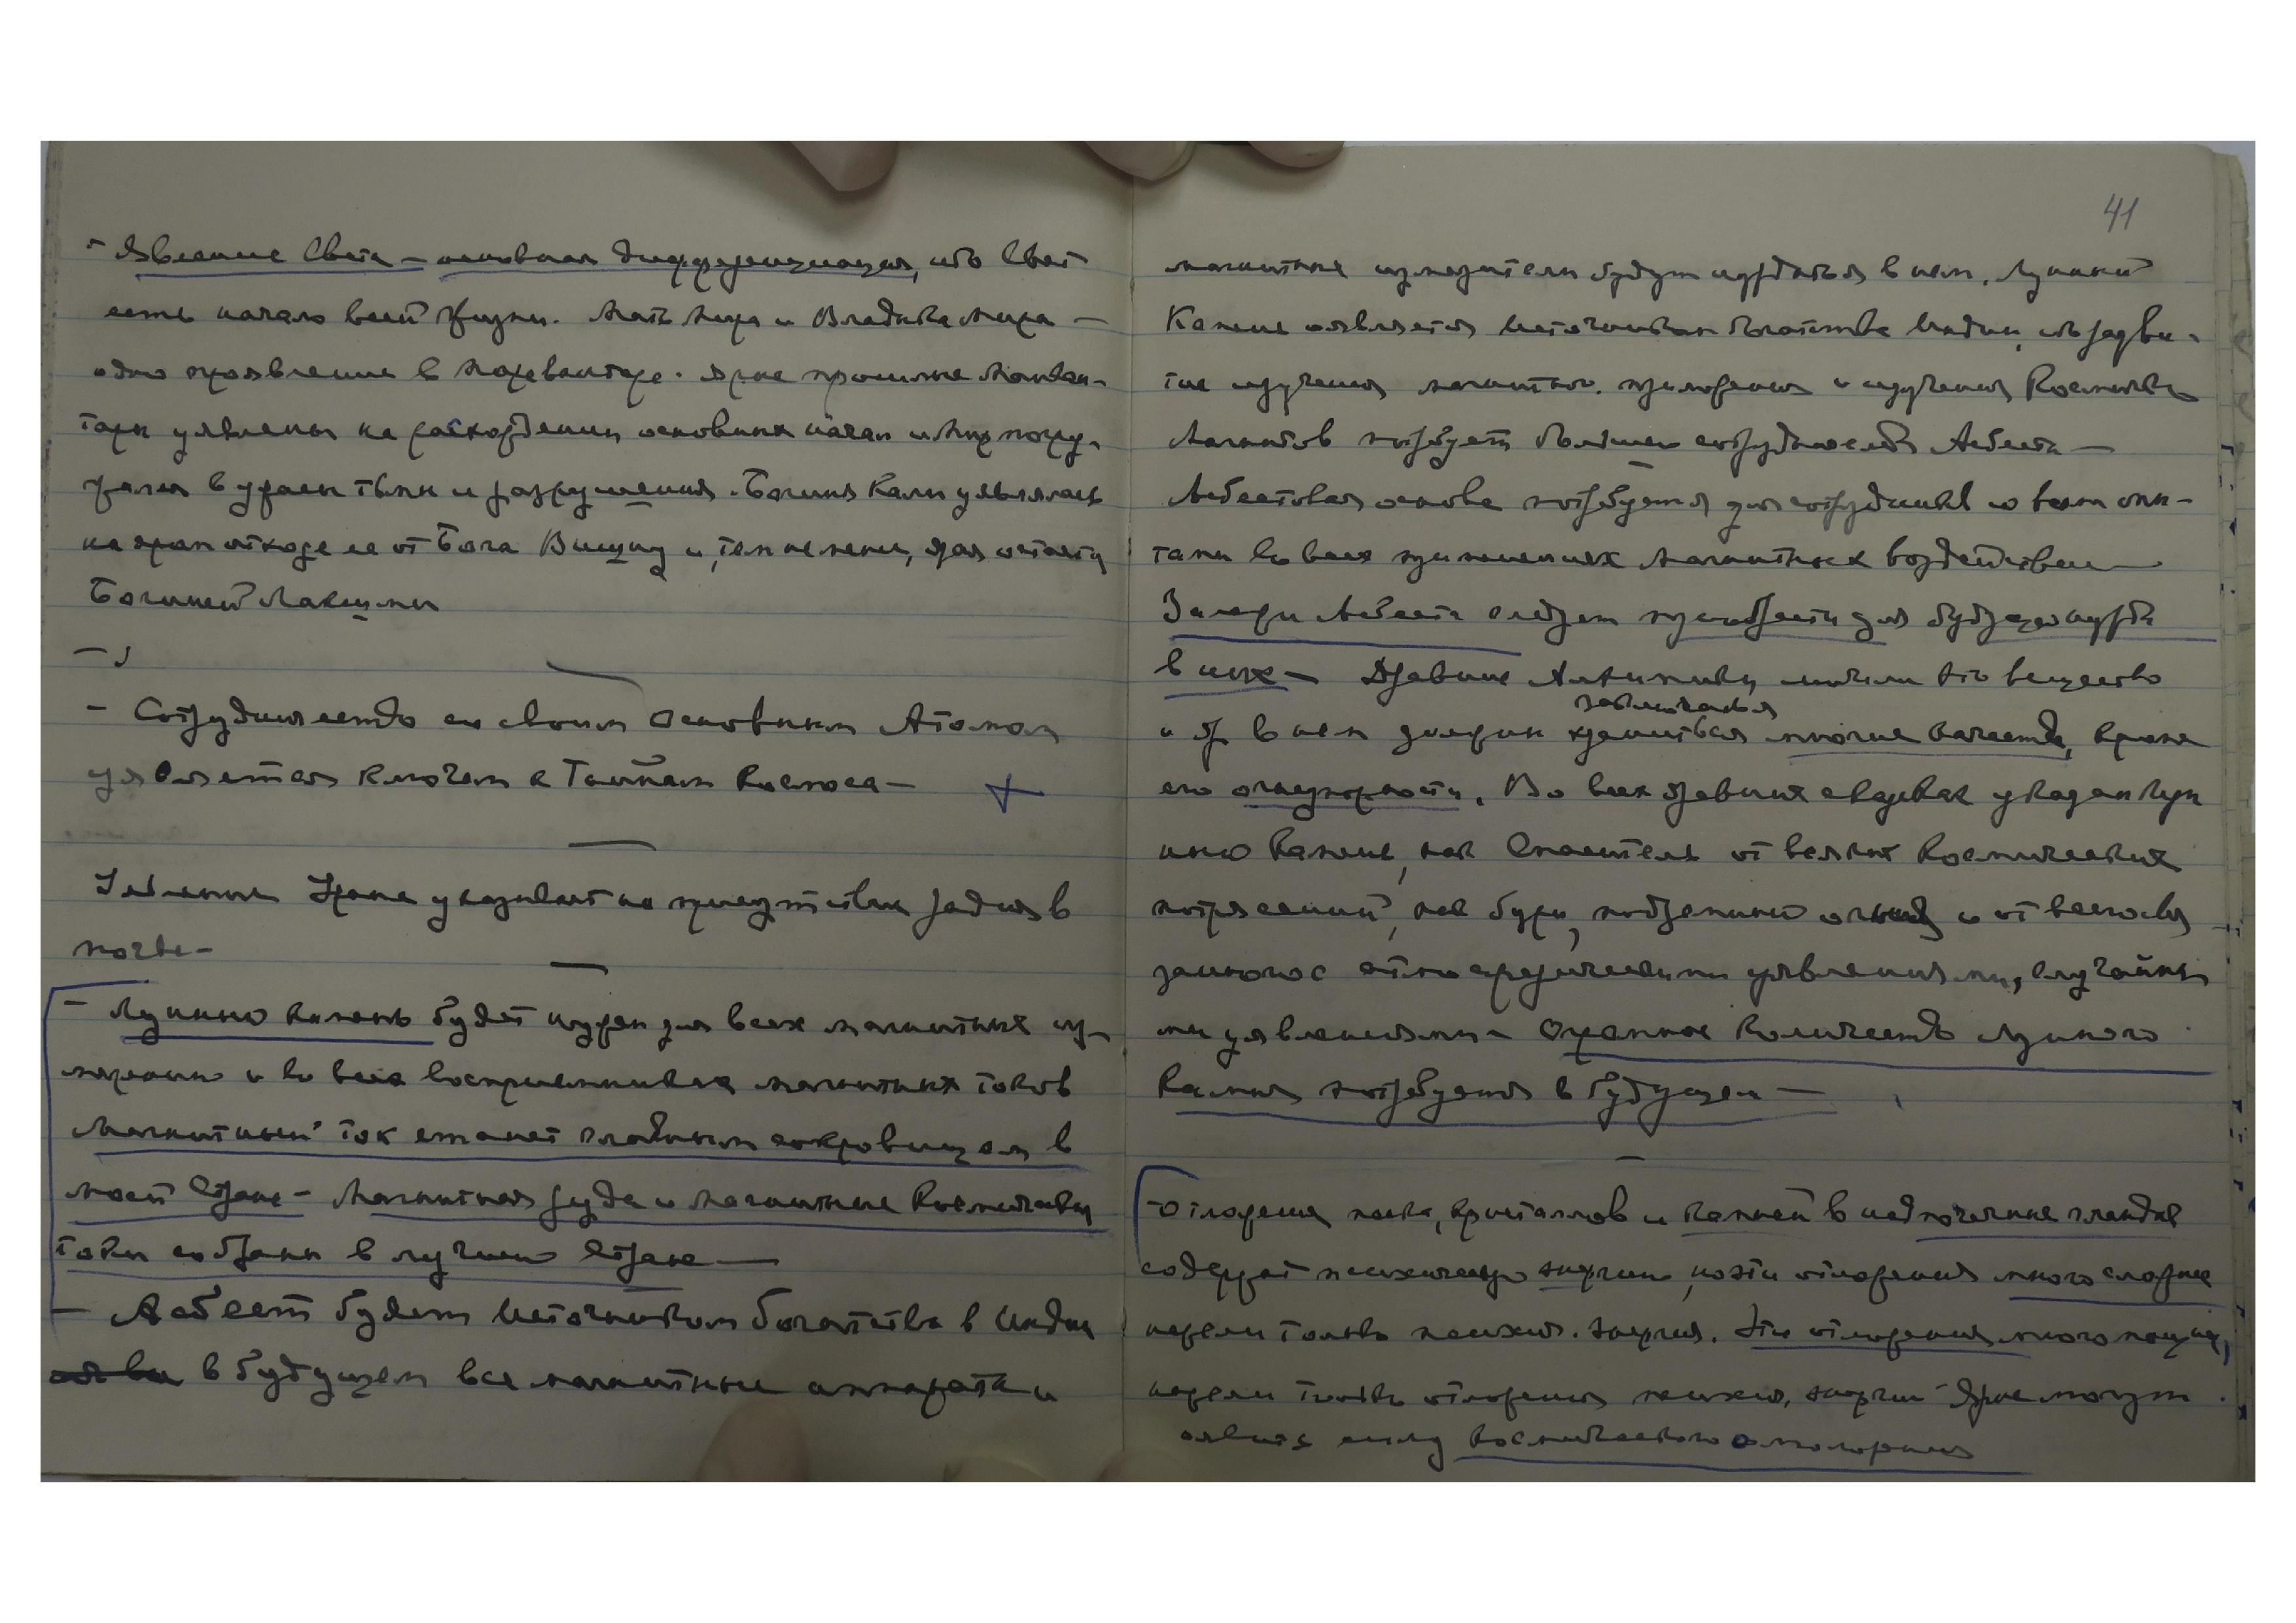 – Явление Света – основная дифференциация, ибо Свет
есть начало всей Жизни. Мать Мира и Владыка Мира –
одно проявление в Манвантаре. Ярые прошлые Манван-
тары уявлены на расхождении основных начал и Мир погру-
жался в ураны тьмы и разрушения. Богиня Кали уявлялась
на яром отходе ее от Бога Вишну и, тем не менее, яро остается
Богиней Лакшми
–
– Сотрудничество со своим Основным Атомом
уявляется ключом к Тайнам Космоса –
Явление Урана указывает на присутствие радия в
почве –
– Лунный камень будет нужен для всех магнитных из-
мерений и во всех восприемниках магнитных токов
Магнитный ток станет главным сокровищем в
моей Стране – Магнитная руда и магнитные Космические
токи собраны в лучшей Стране –
– Асбест будет Источником богатства в Индии
в будущем все магнитные аппараты и
41
магнитные измерители будут нуждаться в нем. Лунный
Камень оявляется Источником богатства Индии, ибо разви-
тие изучения магнитн. приложения и изучения Космических
Магнитов потребует большого сотрудничества Асбеста –
Асбестовая основа потребуется для сотрудников со всеми опы-
тами во всех применениях магнитных воздействий –
Залежи Асбеста следует приобрести для будущей нужды
в них – Древние Алхимики любили это вещество
заключаться
и в нем должны храниться многие качества, кроме
его огнеупорности. Во всех древних сказках указан Лун
ный Камень, как Спаситель от всяких Космических
потрясений, как бури, подземный огонь и от всего связ
занного с атмосферическими уявлениями, случайны
ми уявлениями – Огромное количество лунного
камня потребуется в будущем –
– Отложения песка, кристаллов и камней в надпочечные гланды
содержат психическую энергию, но эти отложения много сложнее
нежели только психич. энергия. Эти отложения много мощнее,
нежели только отложения психич. энергии Ярые могут
оявить силу космического омоложения